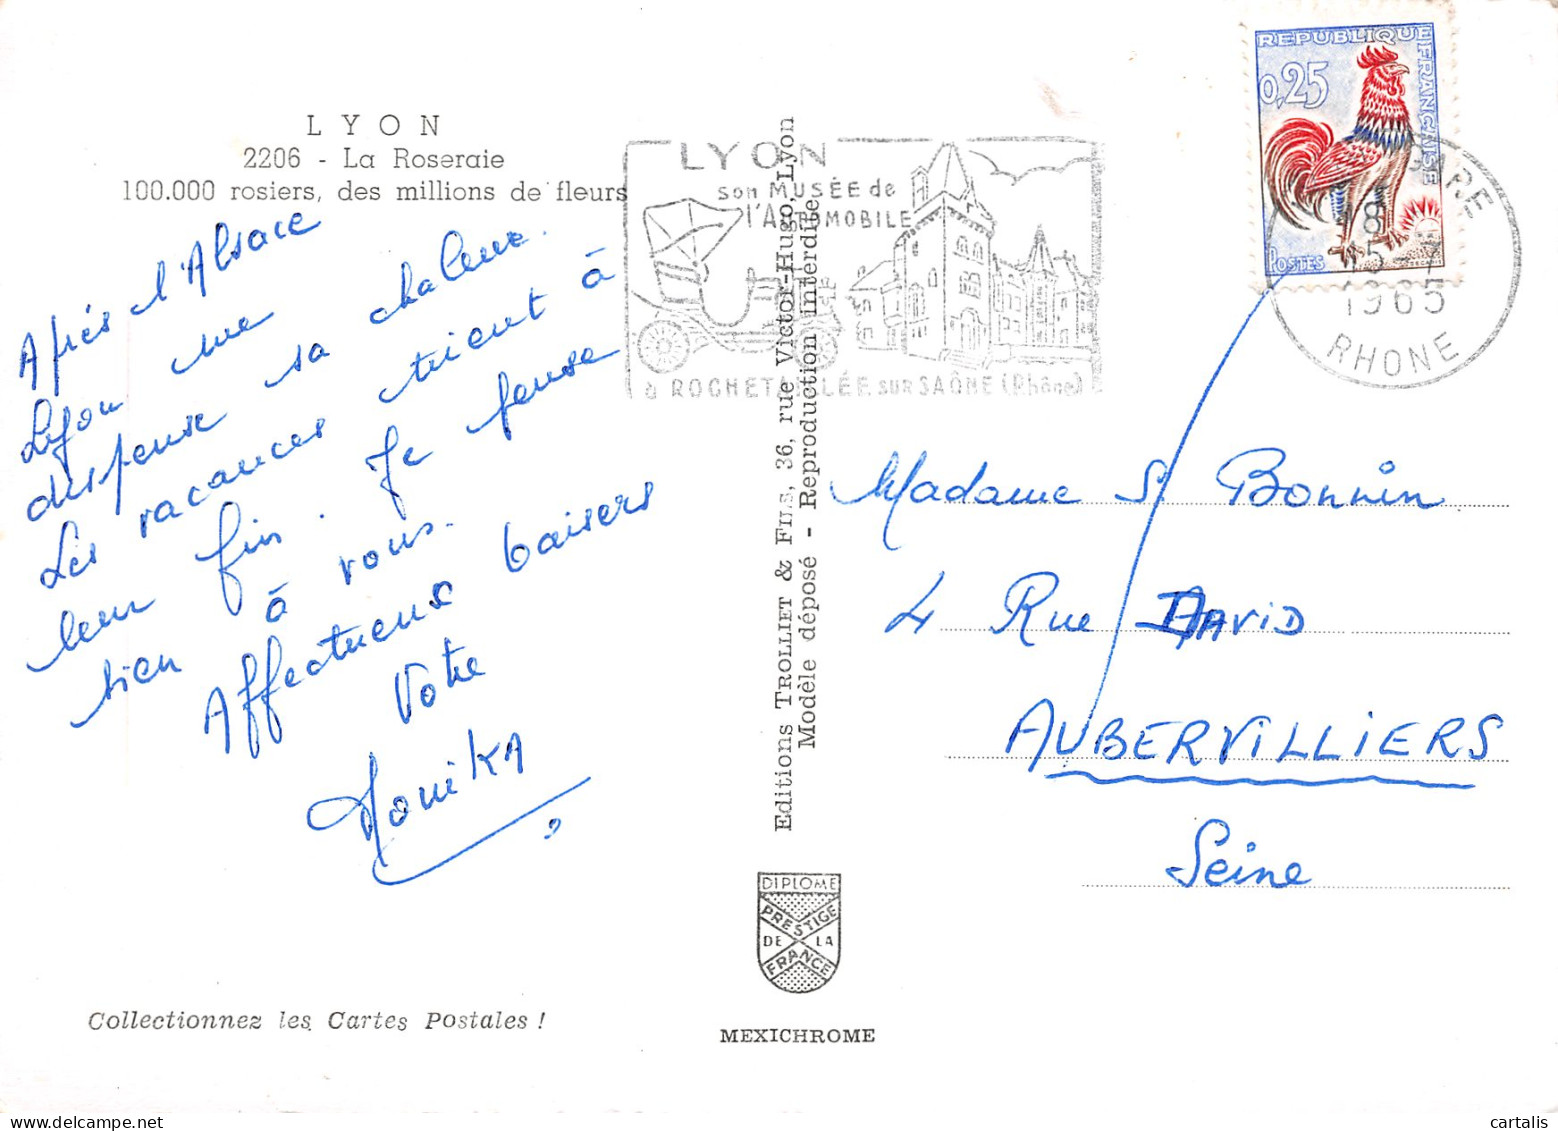 LYON
2206 - La Roseraie
100.000 rosiers, des millions de fleurs
Après l'Alsace
Lyon me
dispense sa chaleur.
Les vacances tirent à
leur fin. Je pense
bien à vous.
Affectueux baisers
Votre
Monika
Collectionnez les Cartes Postales !
Editions TROLLIET & FILS, 36, rue Victor-Hugo, Lyon
Modèle déposé - Reproduction interdite
DIPLOME
PRESTIGE
DE LA
FRANCE
MEXICHROME
LYON
son MUSÉE de
l'AUTOMOBILE
à ROCHETAILLÉE sur SAÔNE (Rhône)
REPUBLIQUE FRANÇAISE
0,25
POSTES
18
1965
RHONE
Madame S. Bonnin
4 Rue DAVID
AUBERVILLIERS
Seine
cartalis